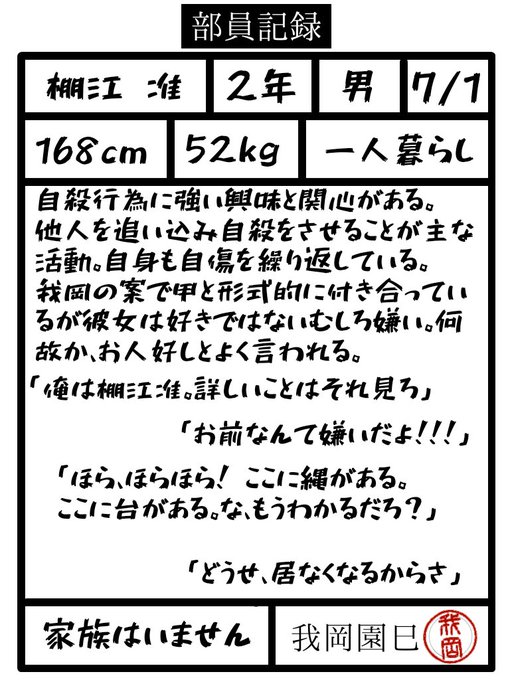 部員記録
棚江 准 2年 男 7/1
168cm 52kg 一人暮らし
自殺行為に強い興味と関心がある。
他人を追い込み自殺をさせることが主な
活動。自身も自傷を繰り返している。
我岡の案で甲と形式的に付き合ってい
るが彼女は好きではないむしろ嫌い。何
故か、お人好しとよく言われる。
「俺は棚江准。詳しいことはそれ見ろ」
「お前なんて嫌いだよ!!!」
「ほら、ほらほら! ここに縄がある。
ここに台がある。な、もうわかるだろ?」
「どうせ、居なくなるからさ」
家族はいません 我岡園巳 我岡